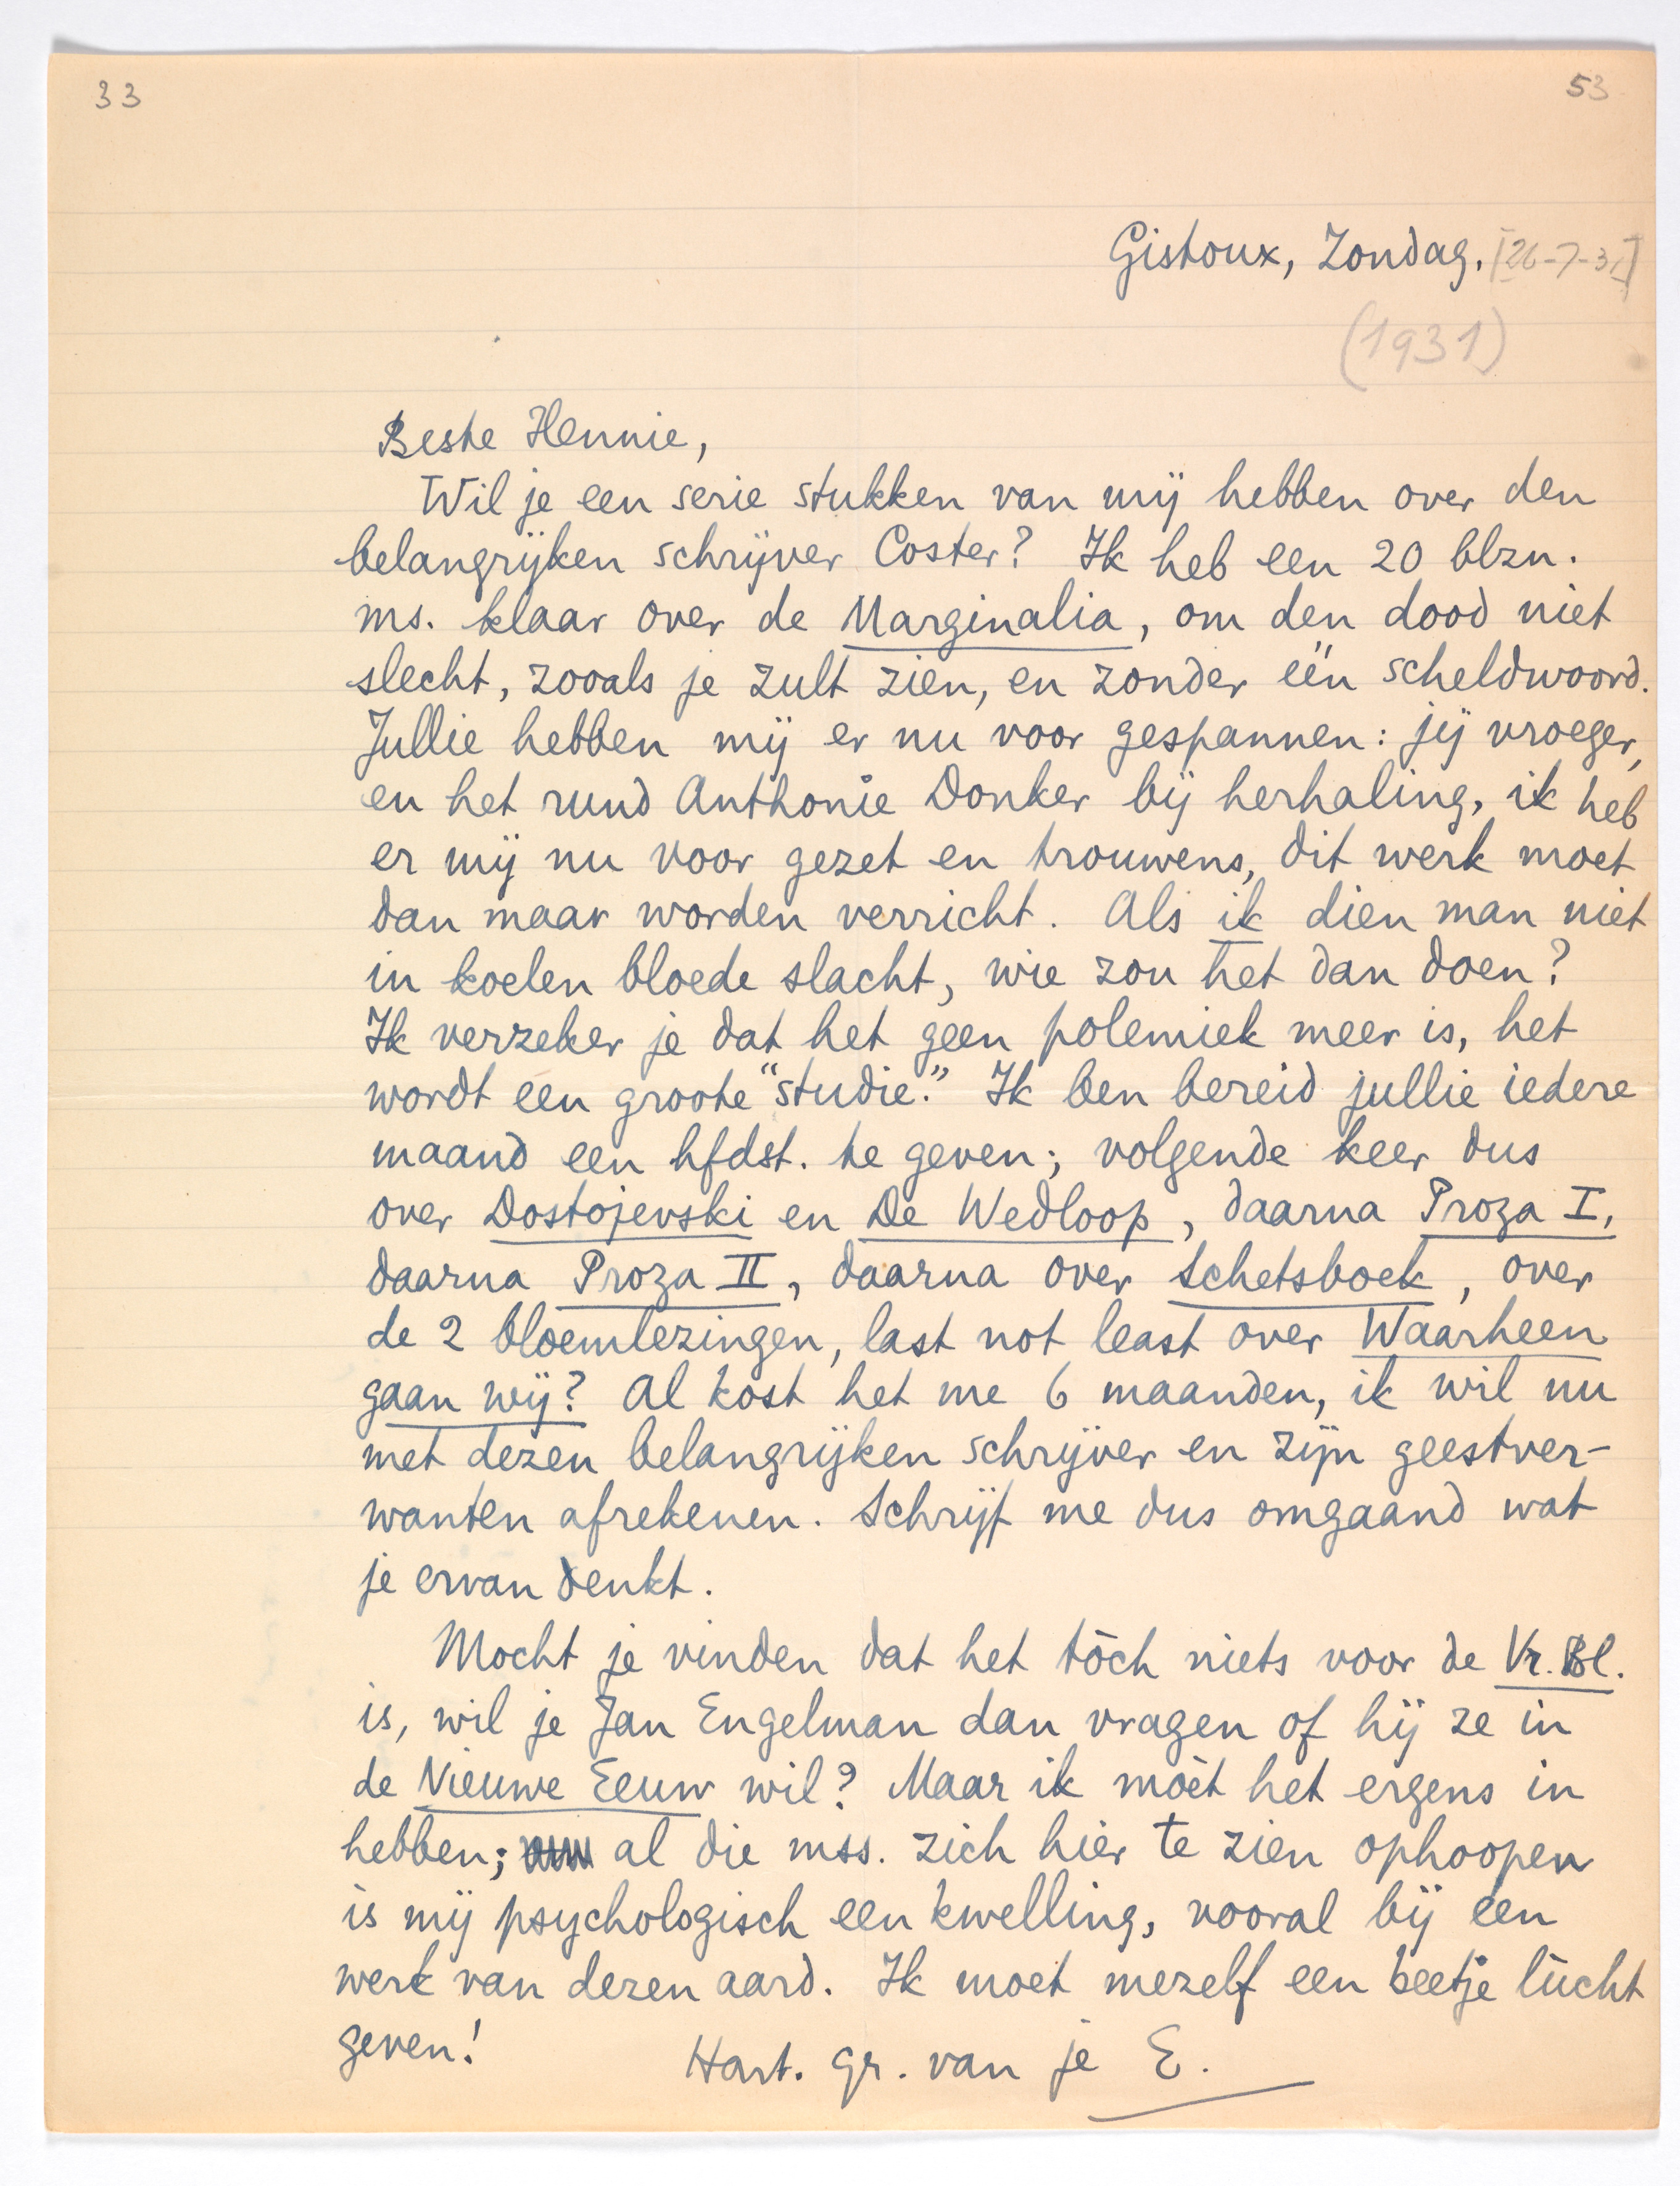 33
53
Gistoux, Zondag. [26-7-31]
(1931)
Beste Hennie,
Wil je een serie stukken van mij hebben over den
belangrijken schrijver Coster? Ik heb een 20 blzn.
ms. klaar over de Marginalia, om den dood niet
slecht, zooals je zult zien, en zonder één scheldwoord.
Jullie hebben mij er nu voor gespannen: jij vroeger,
en het rund Anthonie Donker bij herhaling, ik heb
er mij nu voor gezet en trouwens, dit werk moet
dan maar worden verricht. Als ik dien man niet
in koelen bloede slacht, wie zou het dan doen?
Ik verzeker je dat het geen polemiek meer is, het
wordt een groote "studie." Ik ben bereid jullie iedere
maand een hfdst. te geven; volgende keer dus
over Dostojevski en De Wedloop, daarna Proza I,
daarna Proza II, daarna over Schetsboek, over
de 2 bloemlezingen, last not least over Waarheen
gaan wij? Al kost het me 6 maanden, ik wil nu
met dezen belangrijken schrijver en zijn geestver-
wanten afrekenen. Schrijf me dus omgaand wat
je ervan denkt.
Mocht je vinden dat het tòch niets voor de Vr. Bl.
is, wil je Jan Engelman dan vragen of hij ze in
de Nieuwe Eeuw wil? Maar ik mòèt het ergens in
hebben; al die mss. zich hier te zien ophoopen
is mij psychologisch een kwelling, vooral bij een
werk van dezen aard. Ik moet mezelf een beetje lùcht
geven!
Hart. gr. van je E.